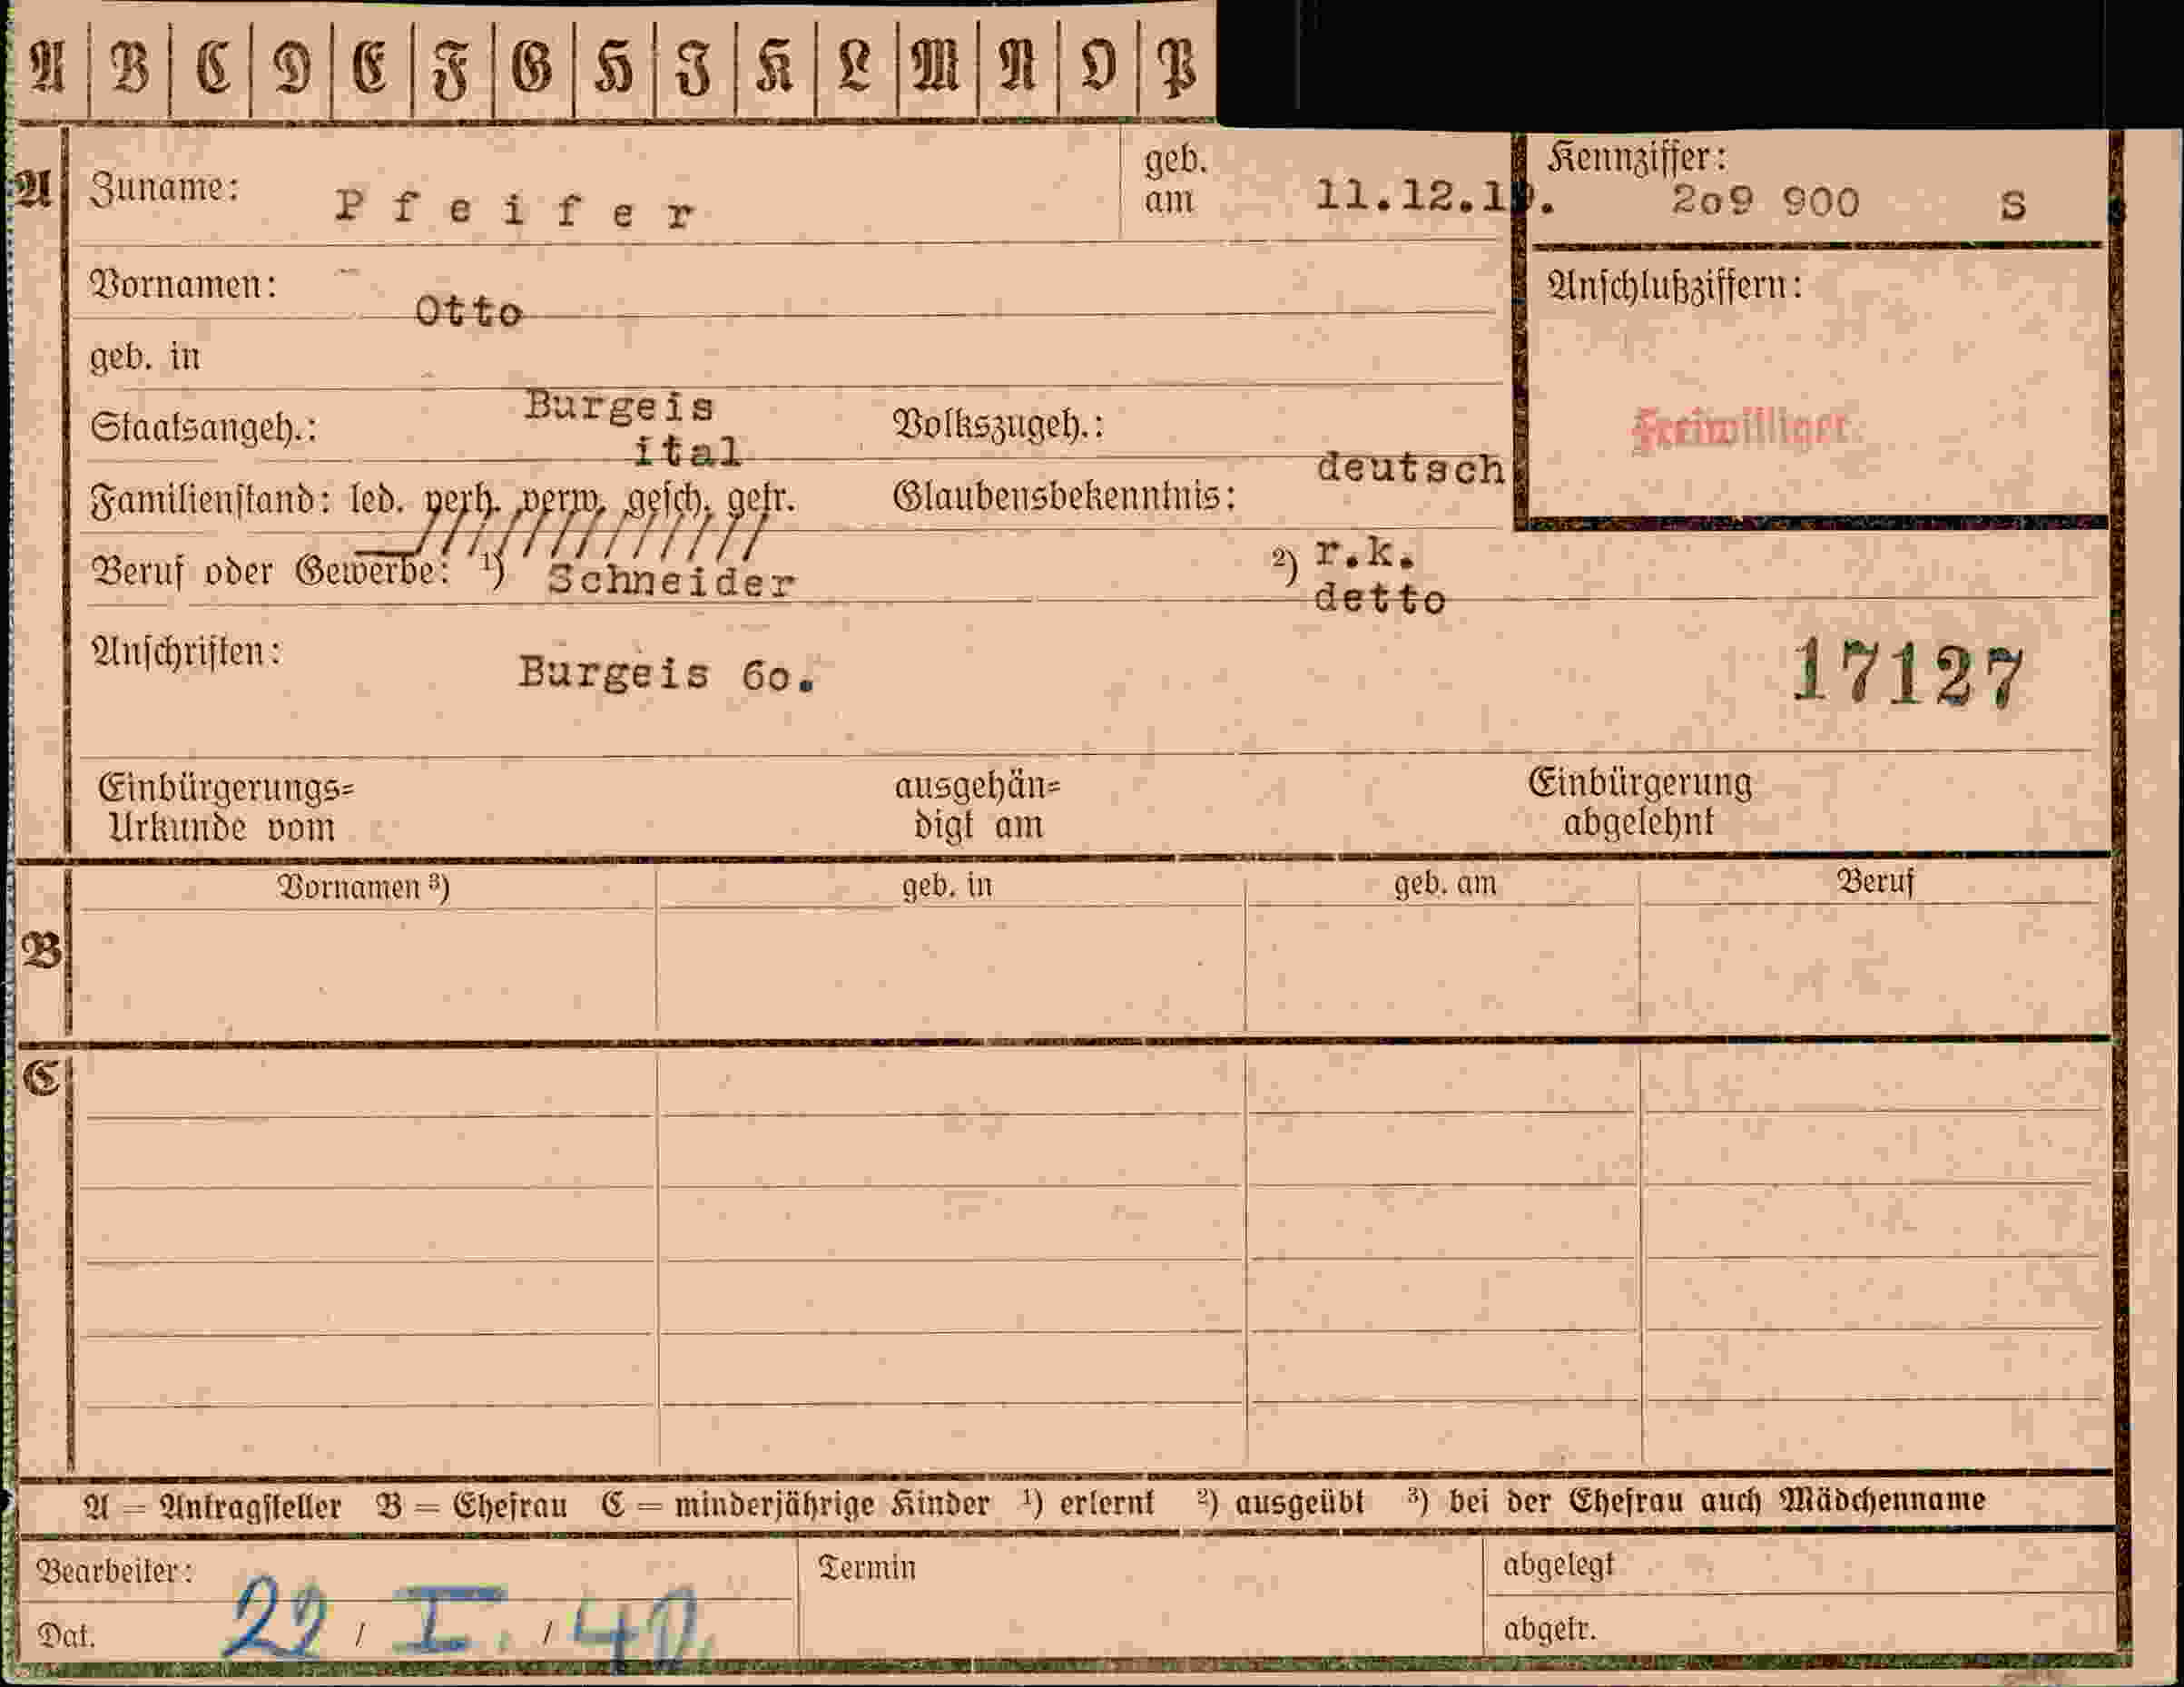 A B C D E F G H I K L M N O P
A Zuname: Pfeifer geb. am 11.12.1
Kennziffer: 2o9 900 S
Vornamen: Otto
Anschlußziffern:
geb. in Burgeis
Freiwilliger
Staatsangeh.: ital Volkszugeh.: deutsch
Familienstand: led. verh. verw. gesch. getr. Glaubensbekenntnis: r.k.
Beruf oder Gewerbe: ¹) Schneider ²) detto
Anschriften: Burgeis 6o.
17127
Einbürgerungs= Urkunde vom ausgehän= digt am Einbürgerung abgelehnt
B Vornamen ³) geb. in geb. am Beruf
C
A = Antragsteller B = Ehefrau C = minderjährige Kinder ¹) erlernt ²) ausgeübt ³) bei der Ehefrau auch Mädchenname
Bearbeiter: Termin abgelegt
Dat. 22 / I. / 40. abgetr.